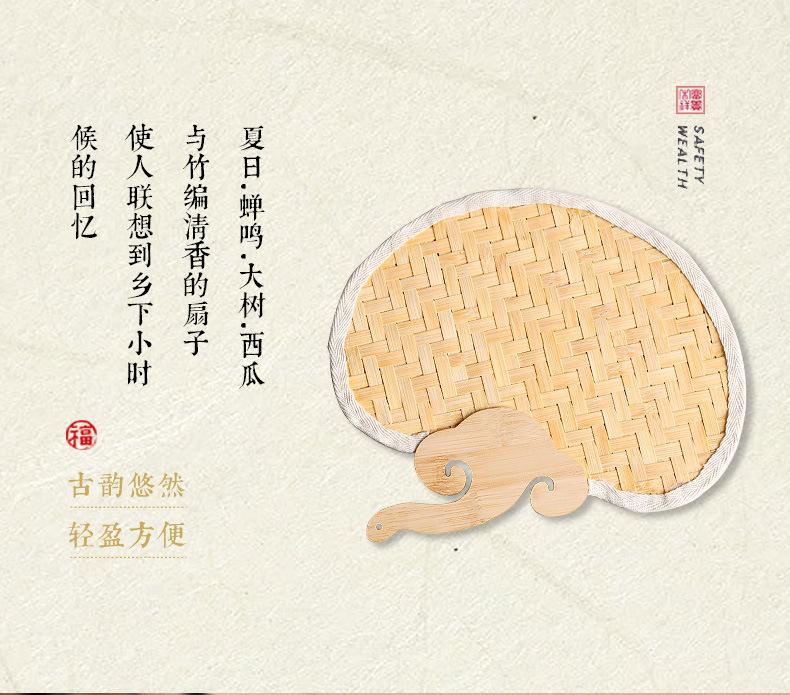 夏日.蝉鸣.大树.西瓜
与竹编清香的扇子
使人联想到乡下小时
候的回忆
福
古韵悠然
轻盈方便
SAFETY
WEALTH